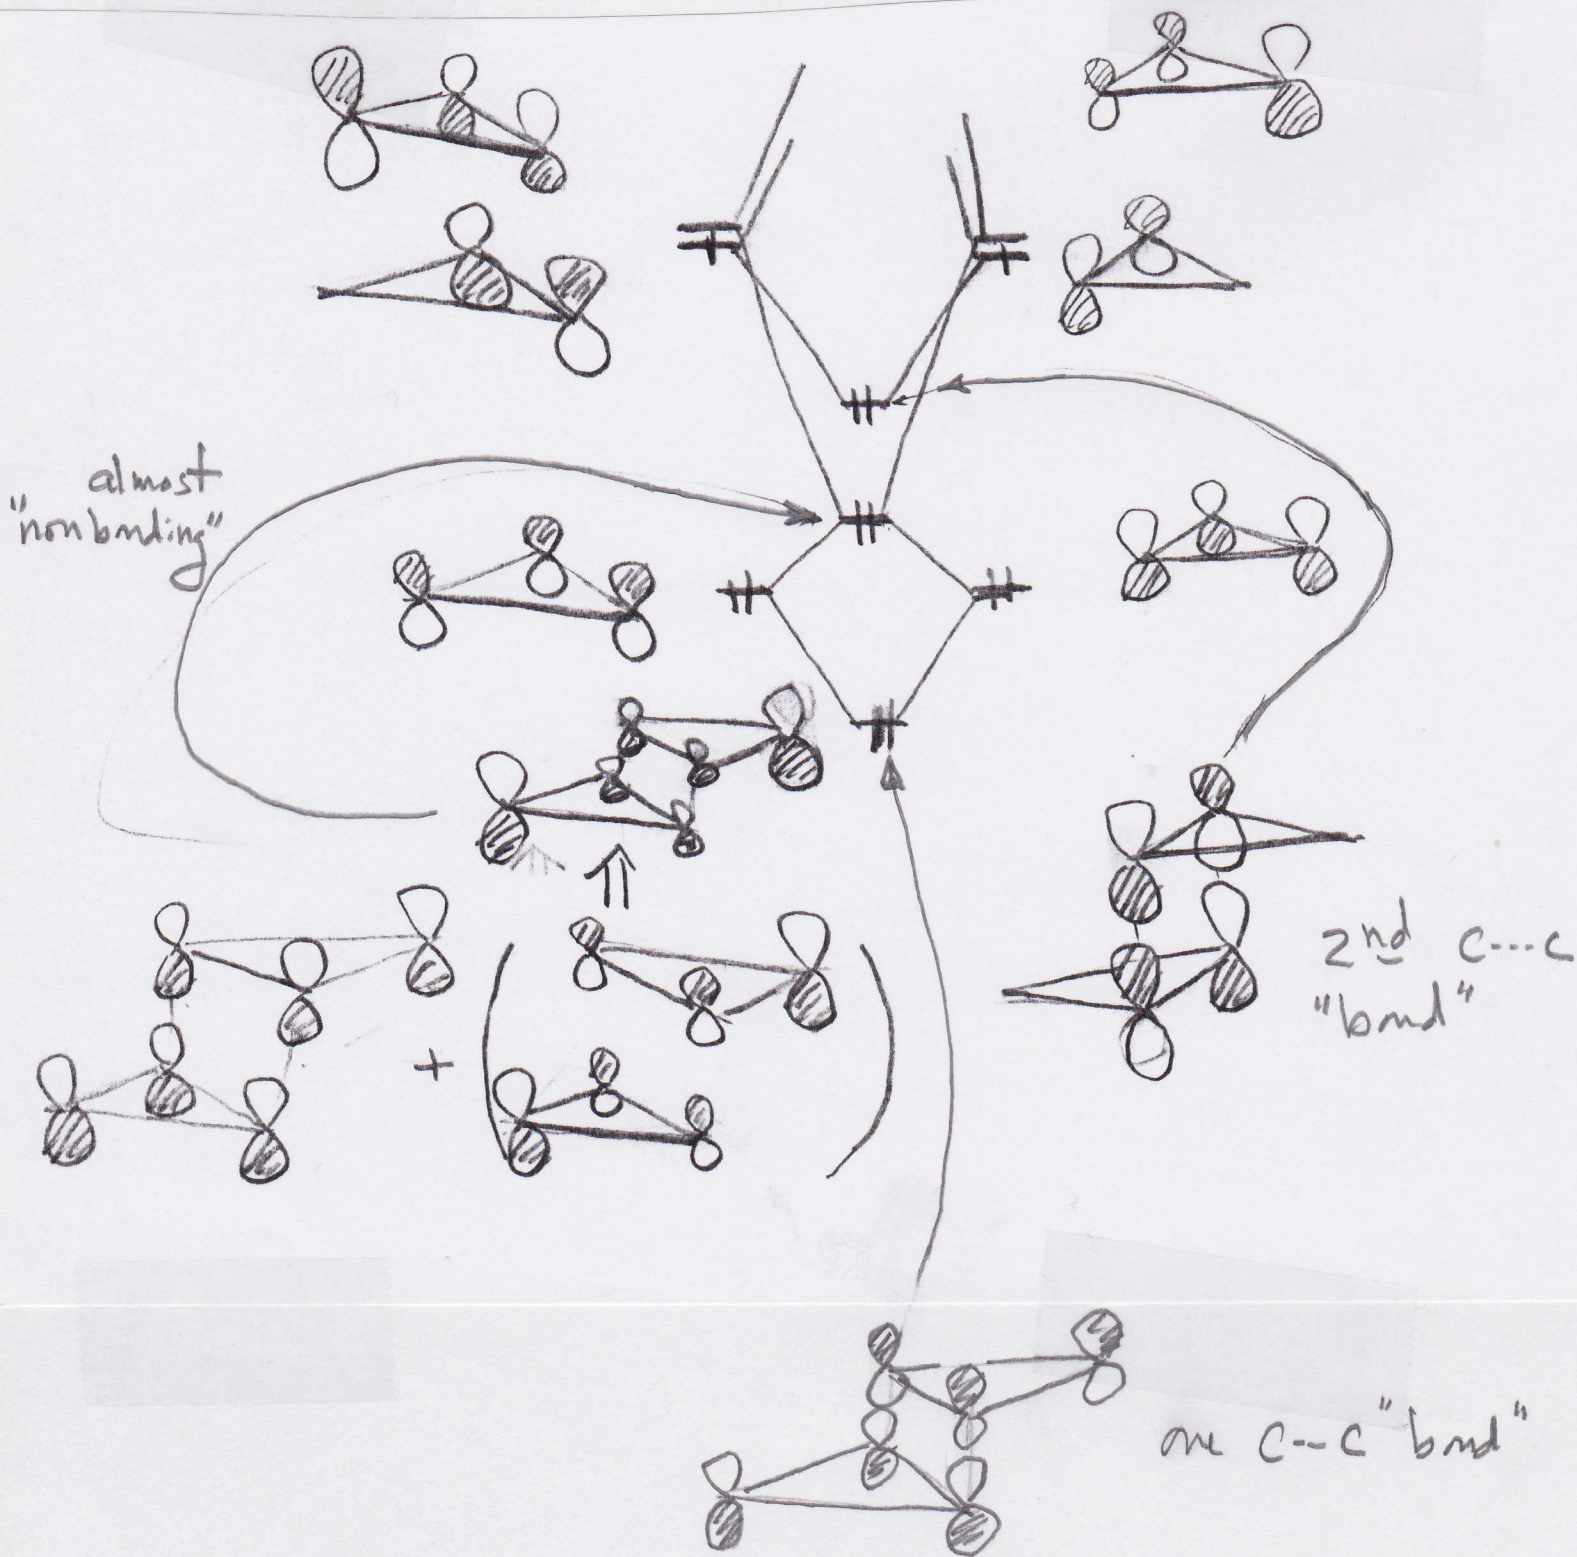 almost
"nonbonding"
+
2nd C---C
"bond"
one C--C "bond"